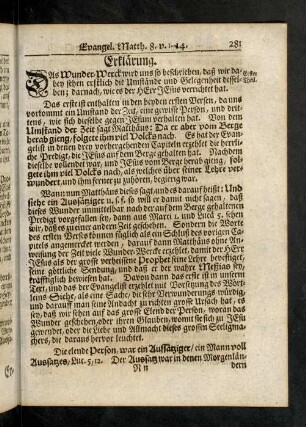 Evangel. Matth. 8. v. 1-14. 281
Erklärung.
DAs Wunder-Werck wird uns so beschrieben, daß wir da-
bey sehen erstlich die Umstände und Gelegenheit dessel-
ben; darnach, wie es der HErr JEsus verrichtet hat.
Erster
Theil.
Das erste ist enthalten in den beyden ersten Versen, da uns
vorkommt ein Umstand der Zeit, eine gewisse Person, und drit-
tens, wie sich dieselbe gegen JEsum verhalten hat. Von dem
Umstand der Zeit sagt Matthäus: Da er aber vom Berge
herab gieng, folgete ihm viel Volcks nach. Es hat der Evan-
gelist in denen drey vorhergehenden Capiteln erzählet die herrli-
che Predigt, die JEsus auf dem Berge gehalten hat. Nachdem
dieselbe vollendet war, und JEsus vom Berge herab gieng, fol-
gete ihm viel Volcks nach, als welches über seiner Lehre ver-
wundert, und ihm ferner zu zuhören, begierig war.
Wann nun Matthäus dieses sagt und es darauf heißt: Und
siehe ein Aussätziger u. s. f. so will er damit nicht sagen, daß
dieses Wunder unmittelbar nach der auf dem Berge gehaltenen
Predigt vorgefallen sey, dann aus Marci 1. und Lucä 5. sehen
wir, daß es zu einer andern Zeit geschehen. Sondern die Worte
des ersten Verss können füglich als ein Schluß des vorigen Ca-
pitels angemercket werden, darauf dann Matthäus ohne An-
weisung der Zeit viele Wunder-Wercke erzählet, damit der HErr
JEsus als der grosse verheissene Prophet seine Lehre bevestiget,
seine göttliche Sendung, und daß er der wahre Messias sey,
kräfftiglich bewiesen hat. Davon dann das erste ist in unserm
Text, und das der Evangelist erzählet mit Vorsetzung des Wört-
leins Siehe, als eine Sache, die sehr Verwunderungs würdig,
und darauf man seine Andacht zu richten grosse Ursach hat, es
sey, daß wir sehen auf das grosse Elend der Person, woran das
Wunder geschehen, oder ihren Glauben, womit sie sich zu JEsu
gewendet, oder die Liebe und Allmacht dieses grossen Seeligma-
chers, die daraus hervor leuchtet.
Die elende Person, war ein Aussätziger/ ein Mann voll
Aussatzes, Luc. 5,12. Der Aussatz war in denen Morgenlän-
N n dern